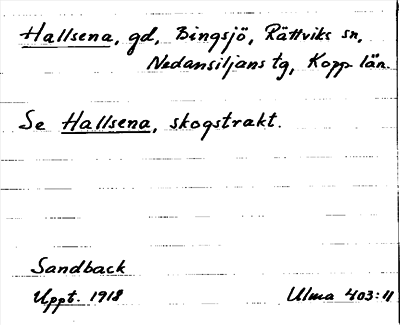 Hallsena, gd, Bingsjö, Rättviks sn,
Nedansiljans tg, Kopp län.
Se Hallsena, skogstrakt.
Sandback
Uppt. 1918
Ulma 403:11